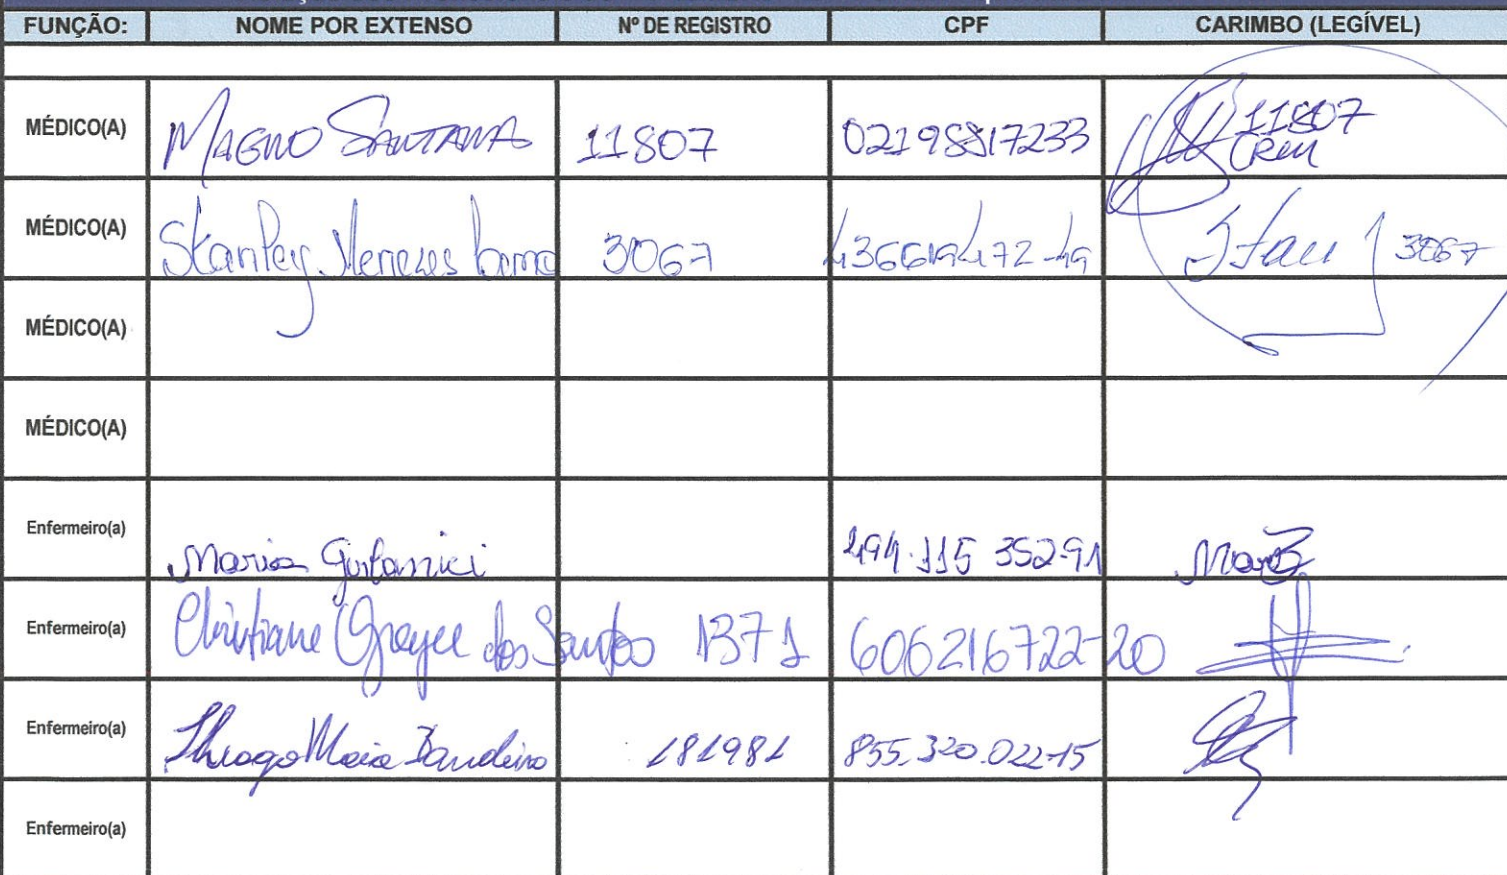 FUNÇÃO: NOME POR EXTENSO Nº DE REGISTRO CPF CARIMBO (LEGÍVEL)
MÉDICO(A) MAGNO SANTANA 11807 02198817233 11807
CRM
MÉDICO(A) Stanley Menezes 3067 436619472-49 Stan 3067
MÉDICO(A)
MÉDICO(A)
Enfermeiro(a) Maria 494.115 352-91
Enfermeiro(a) Christiane dos Santos 1371 606216722-20
Enfermeiro(a) Thiago Maia Bandeira 181981 855.320.022-15
Enfermeiro(a)